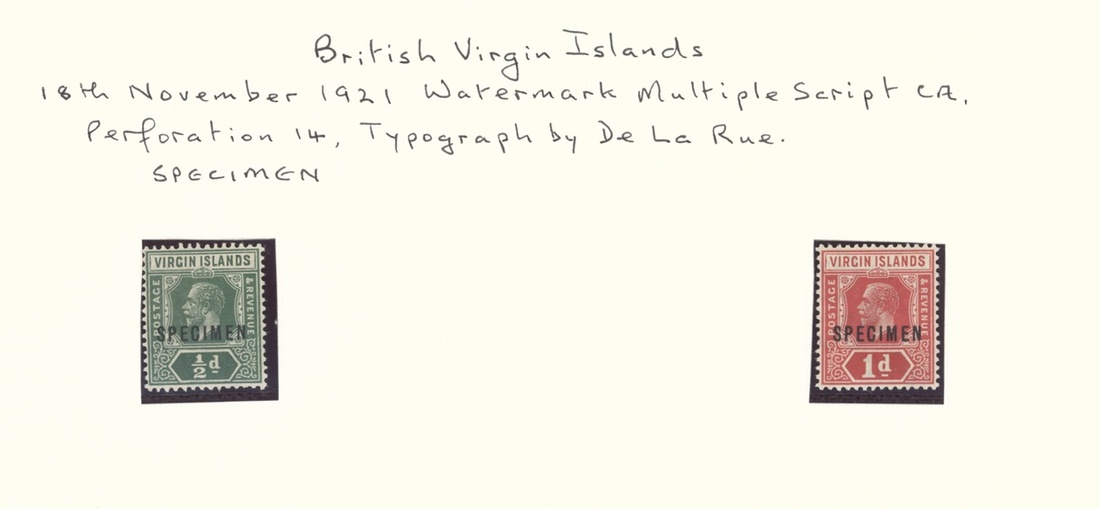 British Virgin Islands
18th November 1921 Watermark Multiple Script CA.
Perforation 14, Typograph by De La Rue.
SPECIMEN
VIRGIN ISLANDS
POSTAGE
& REVENUE
SPECIMEN
½d
VIRGIN ISLANDS
POSTAGE
& REVENUE
SPECIMEN
1d